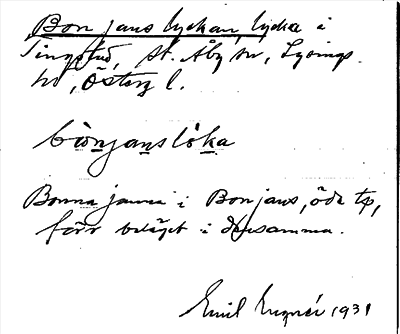 Bon jans lyckan, lycka i
Tingstad, St. Åby sn, Lysings
hd, Österg l.
bònjanslỳka
Bonna janna i Bonjans, öde tp,
förr beläget i densamma.
Emil 1931